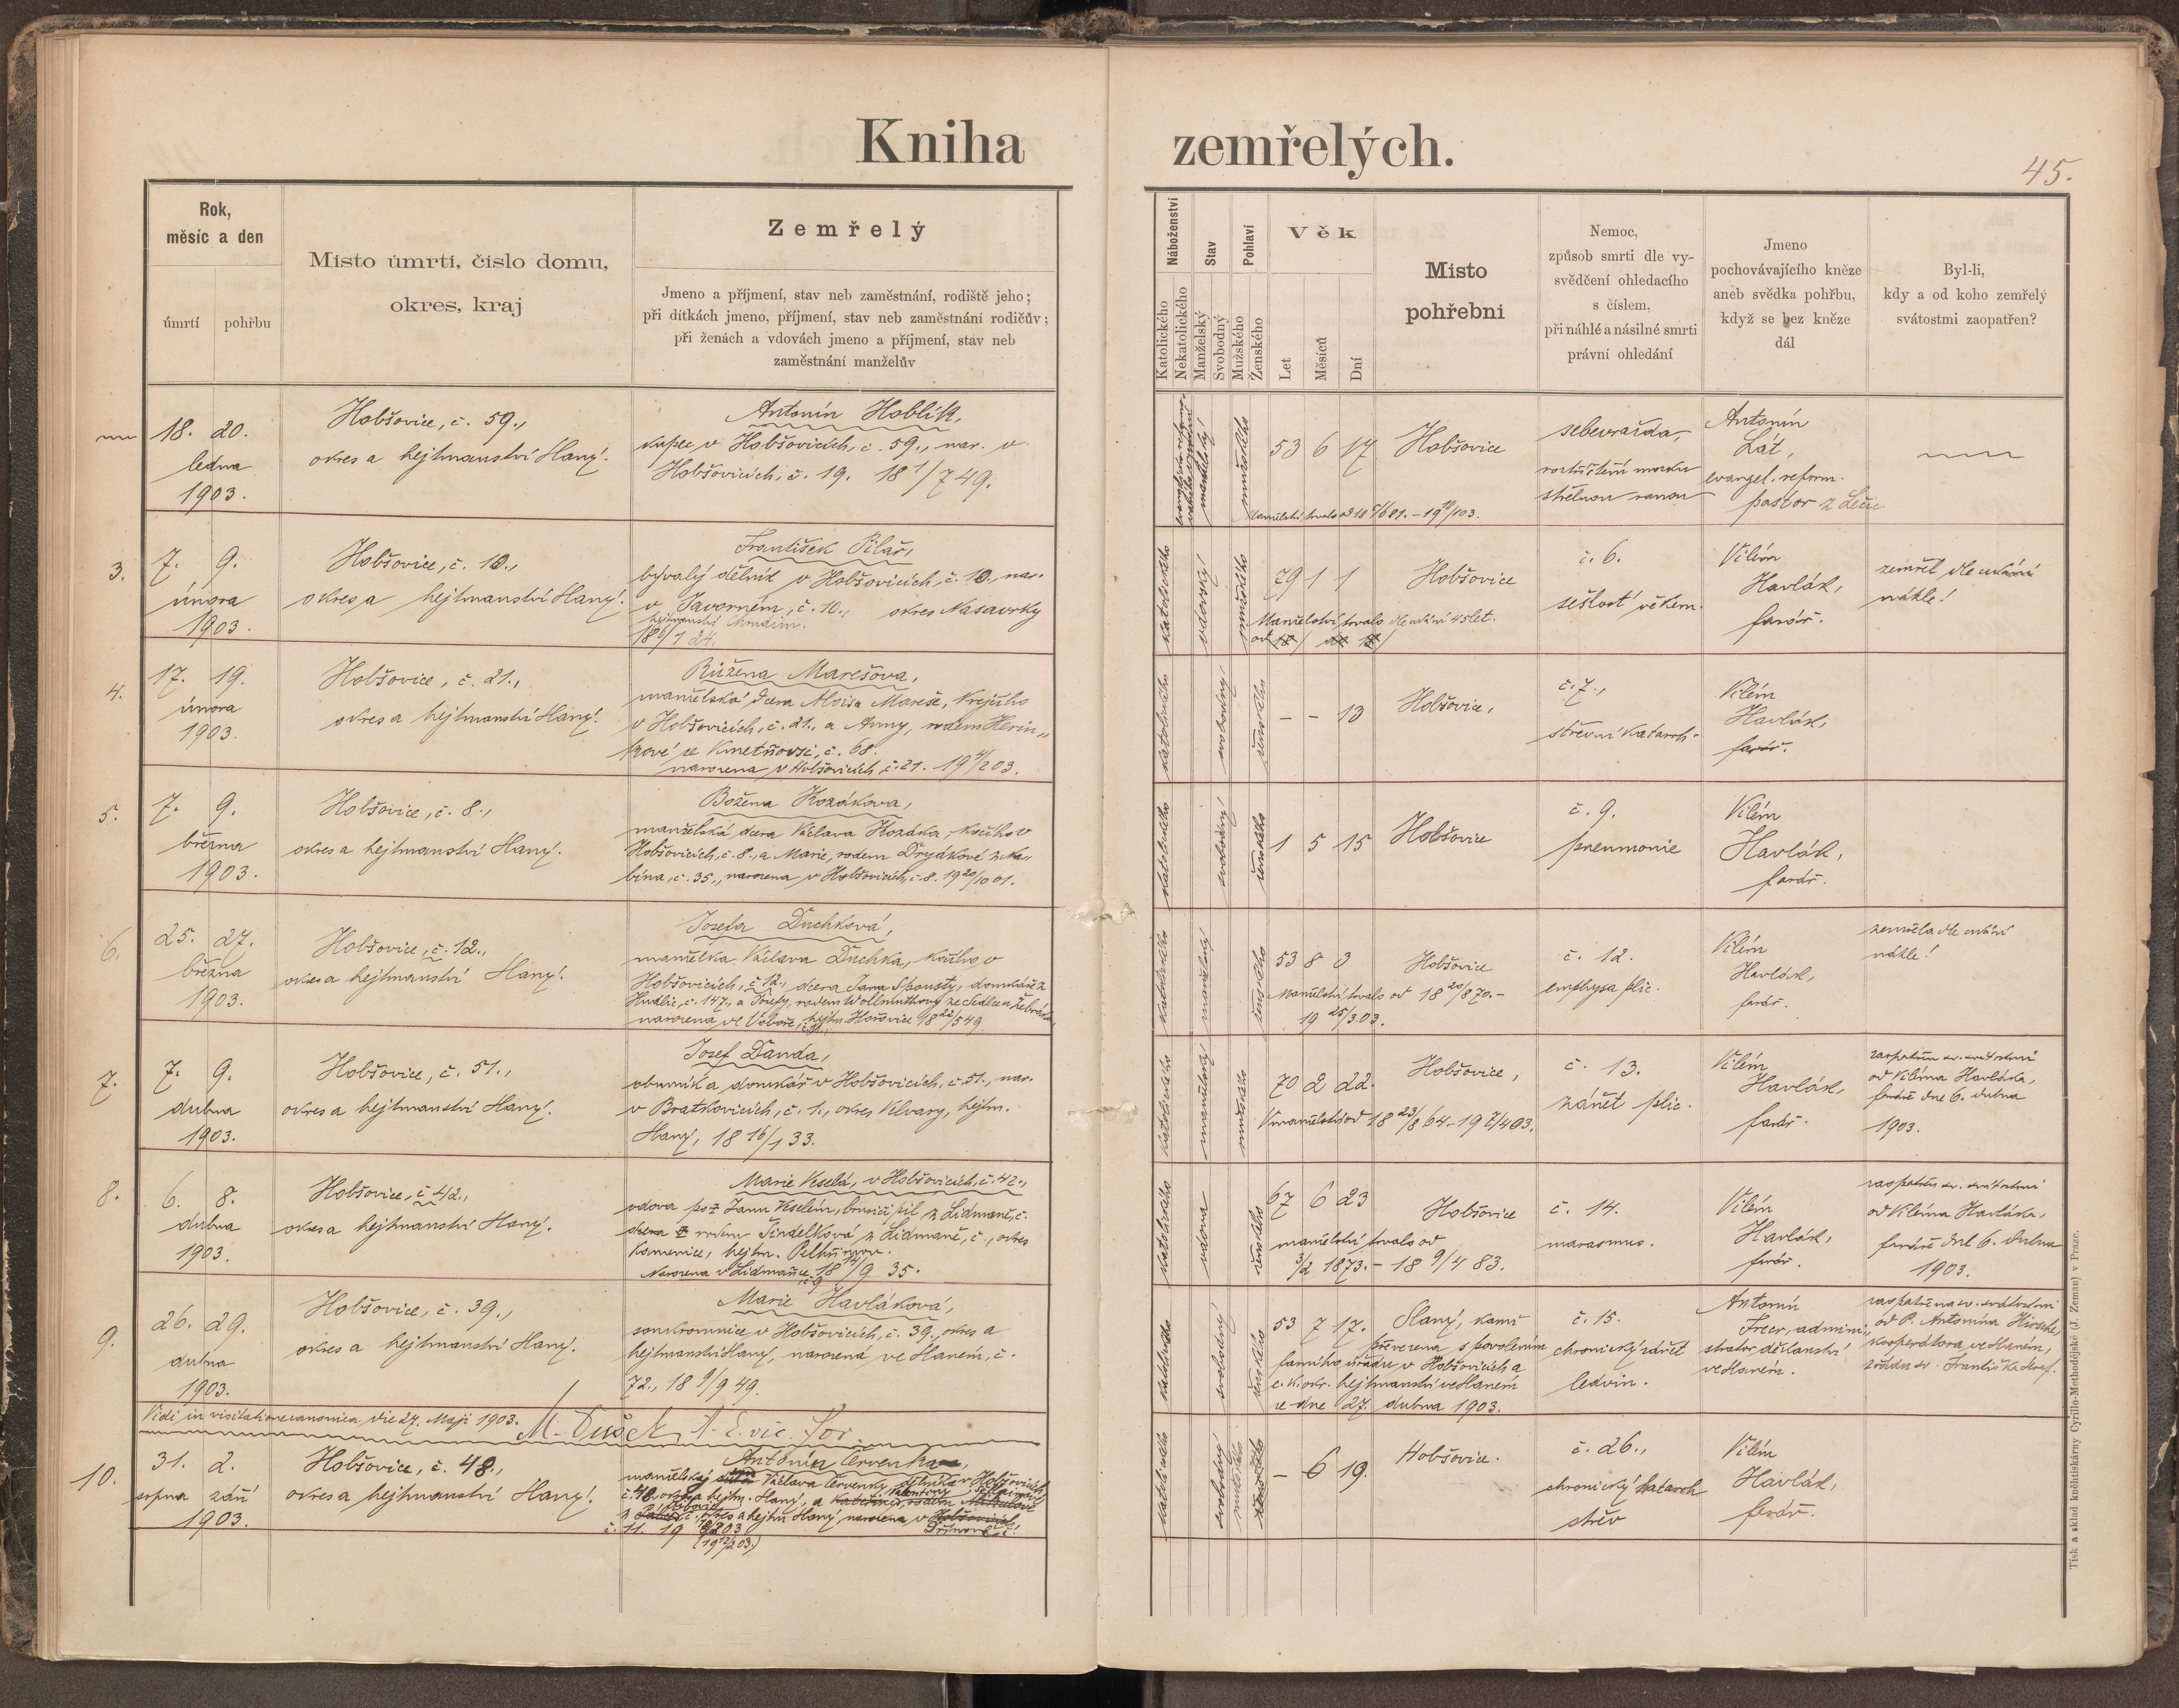 Kniha zemřelých.
45.
Rok,
měsíc a den
úmrtí pohřbu
Místo úmrtí, číslo domu,
okres, kraj
Zemřelý
Jmeno a příjmení, stav neb zaměstnání, rodiště jeho;
při dítkách jmeno, příjmení, stav neb zaměstnání rodičův;
při ženách a vdovách jmeno a příjmení, stav neb
zaměstnání manželův
Náboženství
Katolického
Nekatolického
Stav
Manželský
Svobodný
Pohlaví
Mužského
Ženského
Věk
Let
Měsíců
Dní
Místo
pohřební
Nemoc,
způsob smrti dle vy-
svědčení ohledacího
s číslem,
při náhlé a násilné smrti
právní ohledání
Jmeno
pochovávajícího kněze
aneb svědka pohřbu,
když se bez kněze
dál
Byl-li,
kdy a od koho zemřelý
svátostmi zaopatřen?
18. 20.
ledna
1903.
Hobšovice, č. 59.,
okres a hejtmanství Slaný.
Antonín Hoblík,
kupec v Hobšovicích, č. 59., nar. v
Hobšovicích, č. 19. 18 1/7 49.
manželský
mužského
53 6 17
Hobšovice
Manželství trvalo od
sebevražda,
roztříštění mozku
střelnou ranou
Antonín
Lát,
evangel. reform.
pastor z Lečic
3.
7. 9.
února
1903.
Hobšovice, č. 10.,
okres a hejtmanství Slaný.
František Pilař,
bývalý dělník v Hobšovicích, č. 10., nar.
v Javorném, č. 10., okres Nasavrky
hejtmanství Chrudim.
18 6/1 24.
katolického
vdovský
mužského
79 1 1
Hobšovice
Manželství trvalo dle udání 45 let.
č. 6.
sešlost věkem.
Vilém
Havlák,
farář.
zemřel dle udání
náhle!
4.
17. 19.
února
1903.
Hobšovice, č. 21.,
okres a hejtmanství Slaný.
Růžena Marešova,
manželská dcera Aloisa Mareše, krejčího
v Hobšovicích, č. 21., a Anny, rodem Herin„
kové ze Kmetiňovsi, č. 68.
narozena v Hobšovicích, č. 21. 19 4/2 03.
katolického
svobodný
ženského
- - 13
Hobšovice,
č. 7.,
střevní katarrh.
Vilém
Havlák,
farář.
5.
7. 9.
března
1903.
Hobšovice, č. 8.,
okres a hejtmanství Slaný.
Božena Kozákova,
manželská dcera Václava Kozáka, kočího v
Hobšovicích, č. 8., a Marie, rodem Drydkové z Ka„
bína, č. 35., narozena v Hobšovicích, č. 8. 19 20/10 01.
katolického
svobodný
ženského
1 5 15
Hobšovice
č. 9.
pneumonie
Vilém
Havlák,
farář.
6.
25. 27.
března
1903.
Hobšovice, č. 12.,
okres a hejtmanství Slaný.
Josefa Duchková,
manželka Václava Duchka, kočího v
Hobšovicích, č. 12., dcera Jana Spousty, domkáře z
Hudlic, č. 147., a Josefy, rodem
narozená ve hejtm. Hořovice 18 22/5 49.
katolického
manželský
ženského
53 8 3
Hobšovice
Manželství trvalo od 18 20/8 70. -
19 25/3 03.
č. 12.
emphysa plic.
Vilém
Havlák,
farář.
zemřela dle udání
náhle!
7.
7. 9.
dubna
1903.
Hobšovice, č. 51.,
okres a hejtmanství Slaný.
Josef Danda,
obuvník a domkář v Hobšovicích, č. 51., nar.
v Bratkovicích, č. 1., okres Velvary, hejtm.
Slaný, 18 16/1 33.
katolického
manželský
mužského
70 2 22.
Hobšovice,
V manželství od 18 23/8 64 - 19 7/4 03.
č. 13.
zánět plic.
Vilém
Havlák,
farář.
zaopatřen sv. svátostmi
od Viléma Havláka,
faráře dne 6. dubna
1903.
8.
6. 8.
dubna
1903.
Hobšovice, č. 42.,
okres a hejtmanství Slaný.
Marie Veselá, v Hobšovicích, č. 42.,
vdova po Janu Veselém, brusiči pil z Lidmaně, č.
dcera rodem Šindelková z Lidmaně, č., okres
Kamenice, hejtm. Pelhřimov.
Narozena v Lidmaňce, č. 9 18 14/9 35.
katolického
vdova
ženského
67 6 23
Hobšovice
manželství trvalo od
3/2 1873. - 18 9/4 83.
č. 14.
marasmus.
Vilém
Havlák,
farář.
zaopatřena sv. svátostmi
od Viléma Havláka,
faráře dne 6. dubna
1903.
9.
26. 29.
dubna
1903.
Hobšovice, č. 39.,
okres a hejtmanství Slaný.
Marie Havláková,
soukromnice v Hobšovicích, č. 39., okres a
hejtmanství Slaný, narozená ve Slaném, č.
72., 18 9/9 49.
katolického
svobodný
ženského
53 7 17.
Slaný, kamž
převezena s povolením
farního úřadu v Hobšovicích a
c. k. okr. hejtmanství ve Slaném
ze dne 27. dubna 1903.
č. 15.
chronický zánět
ledvin.
Antonín
Frecr, admini„
strator děkanství
ve Slaném.
zaopatřena sv. svátostmi
od P. Antonína Hirsche,
kooperátora ve Slaném,
Vidi in visitatione canonica die 27. Maji 1903. M. Dušek,
10.
31. 2.
srpna září
1903.
Hobšovice, č. 48.,
okres a hejtmanství Slaný.
Antonín Červenka,
manželský syn Václava Červenky, dělníka v Hobšovicích,
č. 48., okres a hejtm. Slaný, a
č. okres a hejtm. Slaný, narozena v Hobšovicích
č. 11. 19
(19 12/2 03.)
katolického
svobodný
mužského
ženského
- 6 19.
Hobšovice.
č. 26.,
chronický katarrh
střev
Vilém
Havlák,
farář.
Tisk a sklad kněhtiskárny Cyrillo-Methodějské (J. Zeman) v Praze.